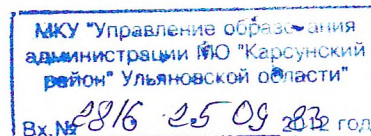 МКУ "Управление образования
администрации МО "Карсунский
район" Ульяновской области"
Вх.№ 2816 25 09 2012 год